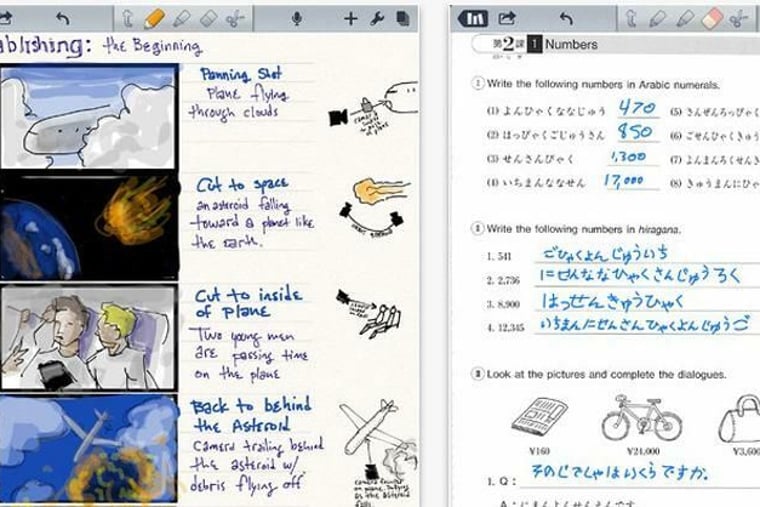 ablishing: the Beginning
Panning Shot
Plane flying
through clouds
Cut to space
an asteroid falling
toward a planet like
the earth.
Cut to inside
of plane
Two young men
are passing time
on the plane
Back to behind
the Asteroid
Camera trailing behind
the asteroid w/
debris flying off
第2課 1 Numbers
I Write the following numbers in Arabic numerals.
(1) よんひゃくななじゅう 470 (5) さんぜんろっぴゃく
(2) はっぴゃくごじゅうさん 850 (6) ごせんひゃくきゅう
(3) せんさんびゃく 1,300 (7) よんまんろくせんき
(4) いちまんななせん 17,000 (8) きゅうまんにひゃ
II Write the following numbers in hiragana.
1. 541 ごひゃくよんじゅういち
2. 2,736 にせんななひゃくさんじゅうろく
3. 8,900 はっせんきゅうひゃく
4. 12,345 いちまんにせんさんひゃくよんじゅうご
III Look at the pictures and complete the dialogues.
¥160 ¥24,000 ¥3,600
1. Q: そのじてしゃはいくらですか。
A: にまんよんせんえんです